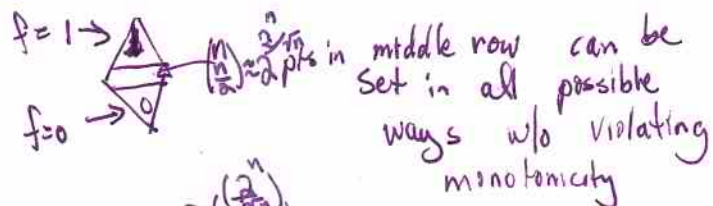 f = 1 → 1 (n n/2) ≈ 2^n/√n pts in middle row can be
set in all possible
f=0 → 0 ways w/o violating
monotonicity